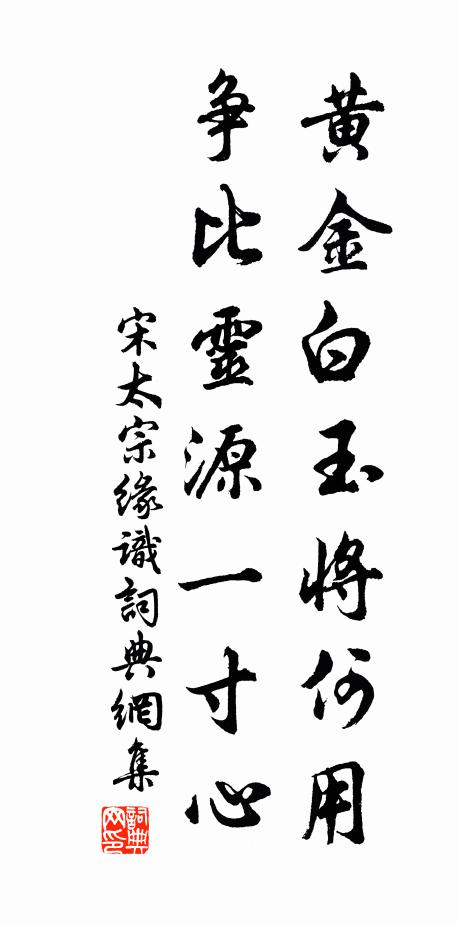 黄金白玉將何用
争比靈源一寸心
宋太宗緣識詞典網集
詞典網印